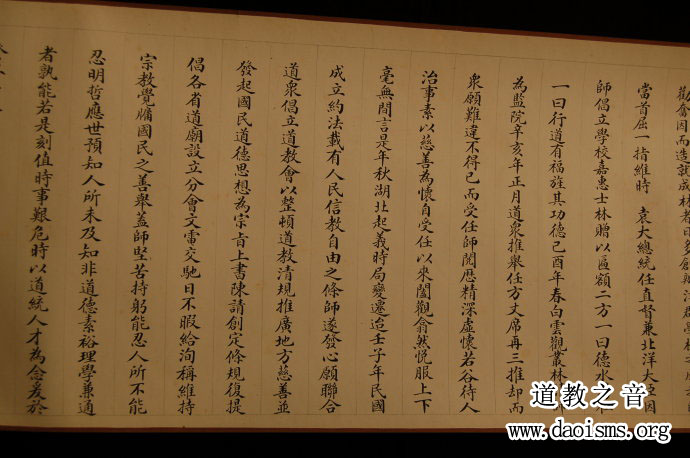 勸奮因而造就成林者日多創辦
當首屈一指維時 袁大總統任直督兼北洋大臣因
師倡立學校嘉惠士林贈以匾額二方一曰德水
一曰行道有福旌其功德己酉年春白雲觀叢林
為監院辛亥年正月道衆推舉任方丈席再三推却而
衆願難違不得已而受任師閱歷精深虛懷若谷待人
治事素以慈善為懷自受任以來闔觀翕然悅服上下
毫無間言是年秋湖北起義時局變遷迨壬子年民國
成立約法載有人民信教自由之條師遂發心願聯合
道衆倡立道教會以整頓道教清規推廣地方慈善並
發起國民道德思想為宗旨上書陳請創定條規復提
倡各省道廟設立分會文電交馳日不暇給洵稱維持
宗教覺牖國民之善舉蓋師堅苦持躬能忍人所不能
忍明哲應世預知人所未及知非道德素裕理學兼通
者孰能若是刻值時事艱危時以道統人才為念爰於
道教之音
www.daoisms.org